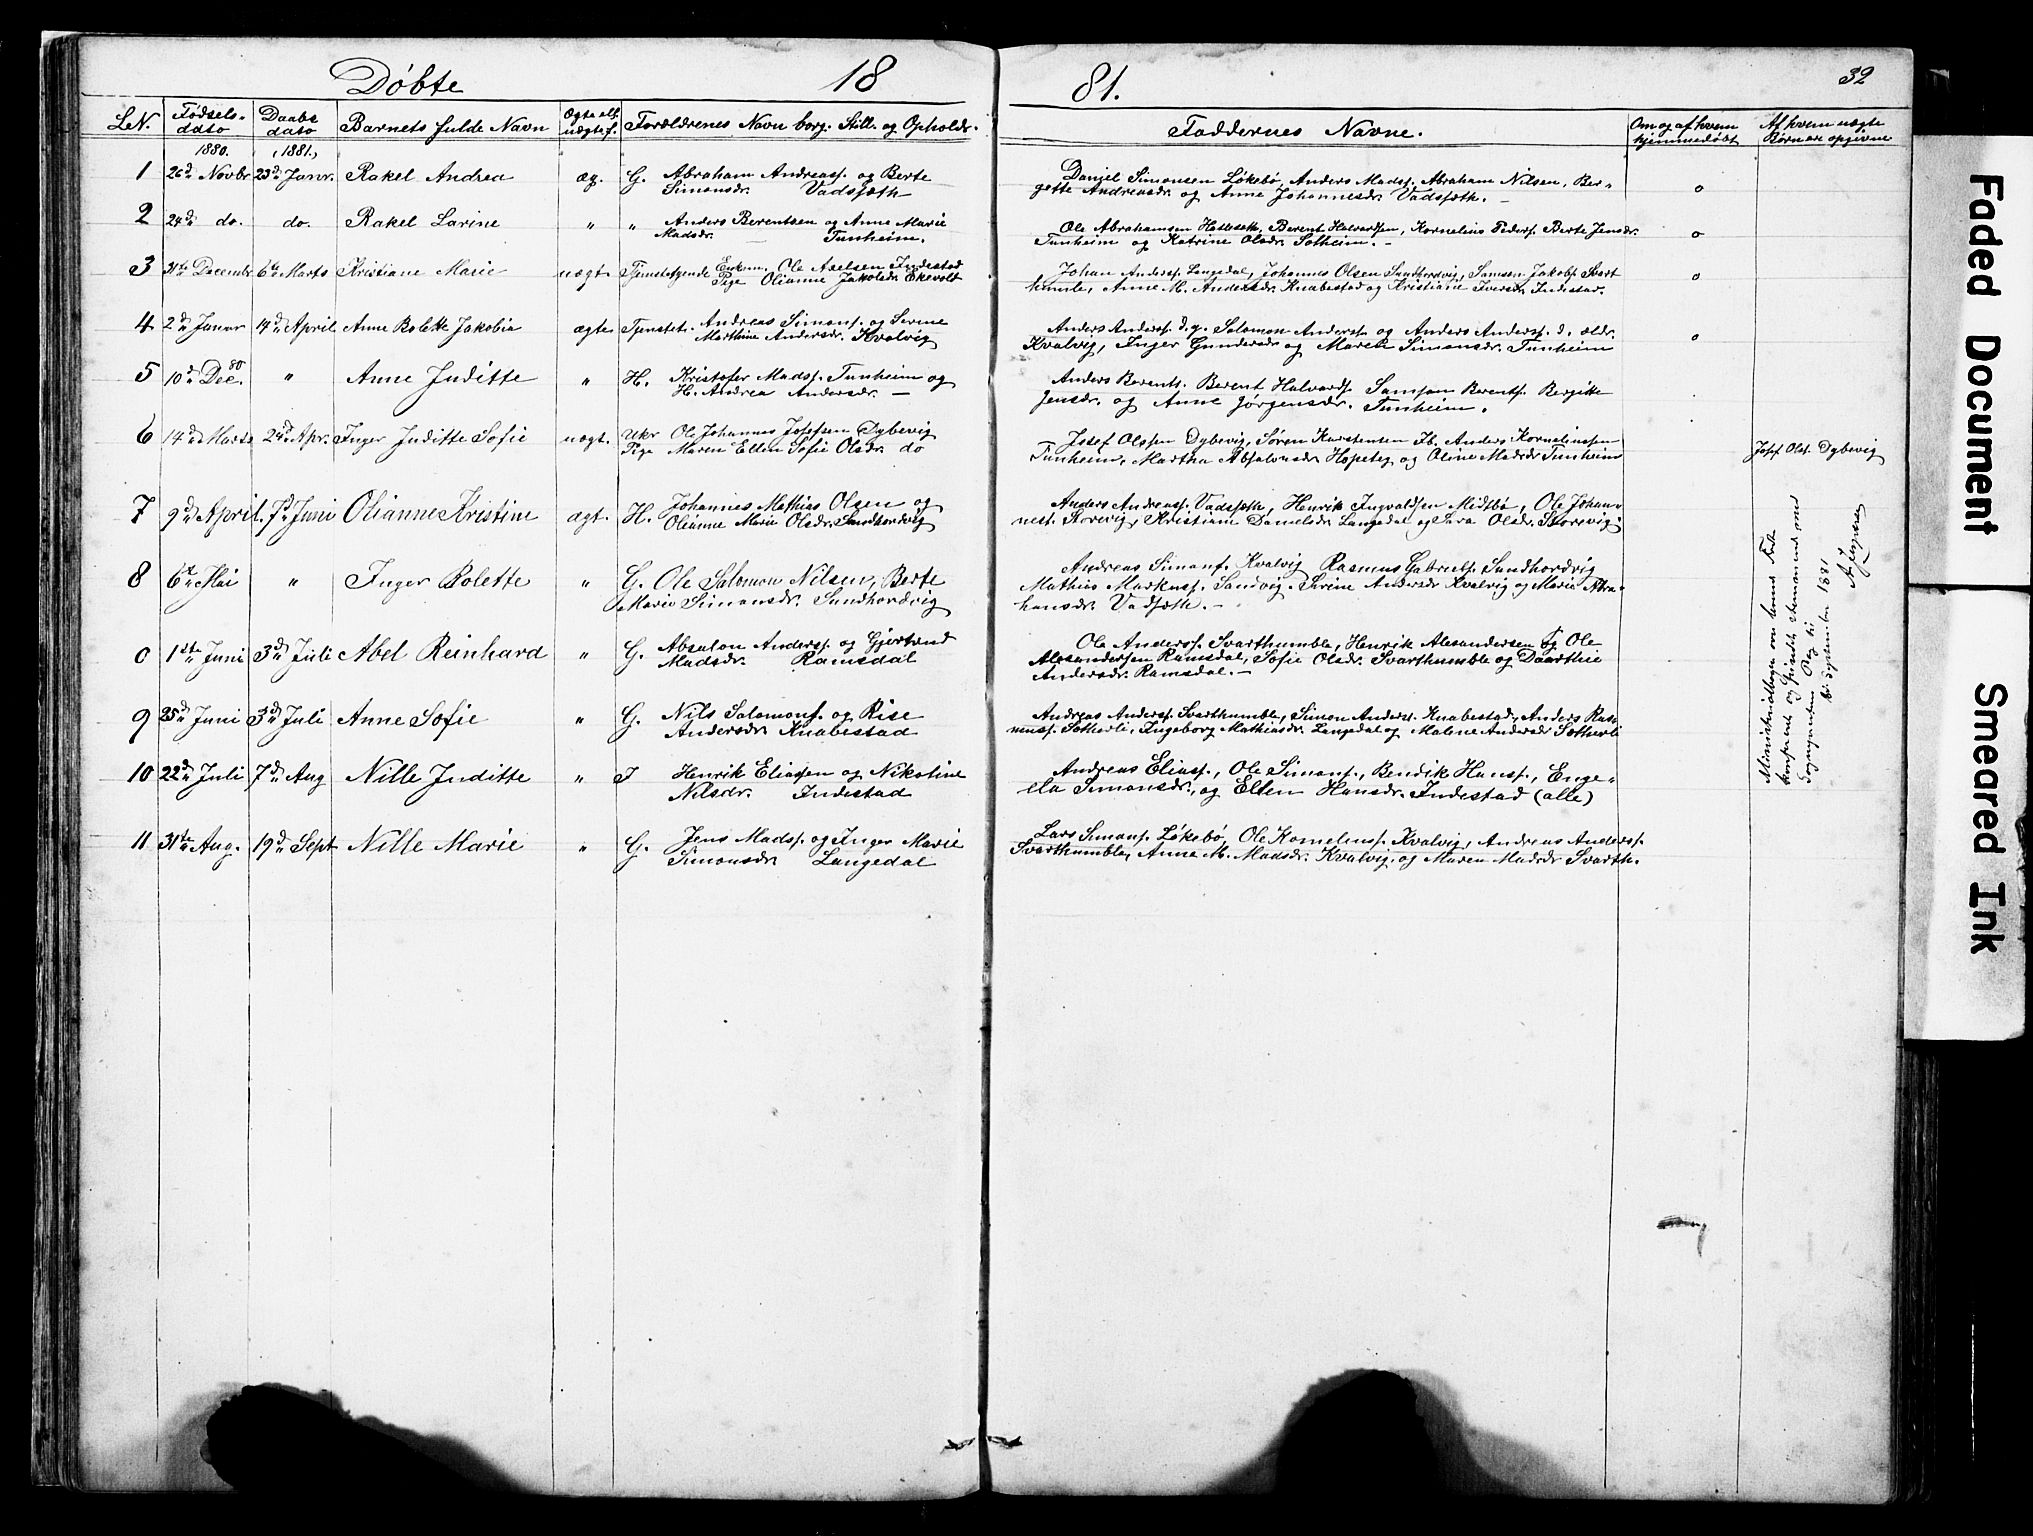 Døbte 18 81. 32
LN. Fødsels-dato Daabs dato Barnets fulde Navn Ægte ell. uægtef. Forældrenes Navn borg. Still. og Opholdr. Faddernes Navne. Om og af hvem hjemmedøbt Af hvem uægte Børn ere opgivne
1880. (1881.)
1 26de Novbr 23de Janr. Rakel Andrea æg. G. Abraham Andreasf. og Berte
Simonsdr. Vadsæth
Danjel Simonsen Løkebø, Anders Madsf. Abraham Nilsen, Ber-
gette Andreasdr. og Anne Johannesdr. Vadsæth. - o
2 24de do. do. Rakel Larine " " Anders Berentsen og Anne Marie
Madsdr. Tunheim.
Ole Abrahamsen Hatleseth, Berent Halvardsen, Kornelius Pedersf. Berte Jensdr.
Tunheim og Katrine Olsdr. Solheim. - o
3 31te Decembr 6te Marts Kristiane Marie uægt. Tjenstsøgende Enkem. Ole Axelsen Indestad
Pige Olianne Jakobsdr. Ekevolt
Johan Andersf. Langedal, Johannes Olsen Sandhordvig, Samson Jakobsf. Svart
humle, Anne M. Andersdr. Knabestad og Kristiane Iversdr. Indestad. o
4 2de Januar 14de April Anne Bolette Jakobia ægte Tjenstet. Andreas Simonsf. og Serine
Marthine Andersdr. Kvalvig
Anders Andersf. d.y. Salomon Andersf. og Anders Andersf. d. ældr.
Kvalvig, Inger Gundersdr. og Marete Simonsdr. Tunheim o
5 10de Dec. 80 " Anne Juditte " H. Kristofer Madsf. Tunheim og
H. Andrea Andersdr. -
Anders Berents. Berent Halvardsf. Samson Berentsf. Bergitte
Jensdr. og Anne Jørgensdr. Tunheim.
6 14de Marts 24de Apr. Inger Juditte Sofie uægt. Ukr Ole Johannes Josefsen Dybevig
Pige Maren Ellen Sofie Olsdr. do
Josef Olssen Dybevig, Søren Karstensen Ib. Anders Korneliussen
Tunheim, Martha Absalonsdr. Hopeteg og Oline Madsdr. Tunheim
Josef Olss. Dybevig
7 9de April. 7de Juni Olianne Kristine ægt. H. Johannes Mathias Olsen og
Olianne Marie Olsdr. Sandhordvig
Anders Andreasf. Vadsæth, Henrik Ingvaldsen Midtbø, Ole Johan-
nesf. Storevig, Kristiane Danielsdr. Langedal og Sara Olsdr. Storevig.
8 6te Mai " Inger Bolette " G. Ole Salomon Nilsen, Berte
Marie Simonsdr. Sandhordvig
Andreas Simonsf. Kvalvig Rasmus Gabrielsf. Sandhordvig
Mathias Markusf. Sandvig. Serine Andersdr Kvalvig og Marie Abra-
hamsdr. Vadsæth. -
0 1ste Juni 3de Juli Abel Reinhard " G. Absalon Andersf. og Gjertrud
Madsdr. Ramsdal
Ole Andersf. Svarthumble, Henrik Alexandersen og Ole
Alexandersen Ramsdal, Sofie Olsdr. Svarthumble og Daarthie
Andersdr. Ramsdal. -
9 25de Juni 3de Juli Anne Sofie " G. Nils Salomonsf. og Rise
Andersdr Knabestad
Andreas Andersf. Svarthumble, Simon Andersf. Knabestad, Anders Ras-
mussf. Sætherli, Ingeborg Mathiasdr. Langedal og Malene Andersdr Sætherli
10 22de Juli 7de Aug Nille Juditte " I Henrik Eliassen og Nikoline
Nilsdr. Indestad
Andreas Eliasf., Ole Simonsf., Bendik Hansf., Enge-
ela Simonsdr., og Ellen Hansdr. Indestad (alle)
11 31te Aug. 19de Sept Nille Marie " G. Jens Madsf. og Inger Marie
Simonsdr Langedal
Lars Simonsf. Løkebø, Ole Kornelius. Kvalvig, Andreas Andersf.
Svarthumble, Anne M. Madsdr. Kvalvig. og Maren Madsdr Svarth.
Faded Document
Smeared Ink